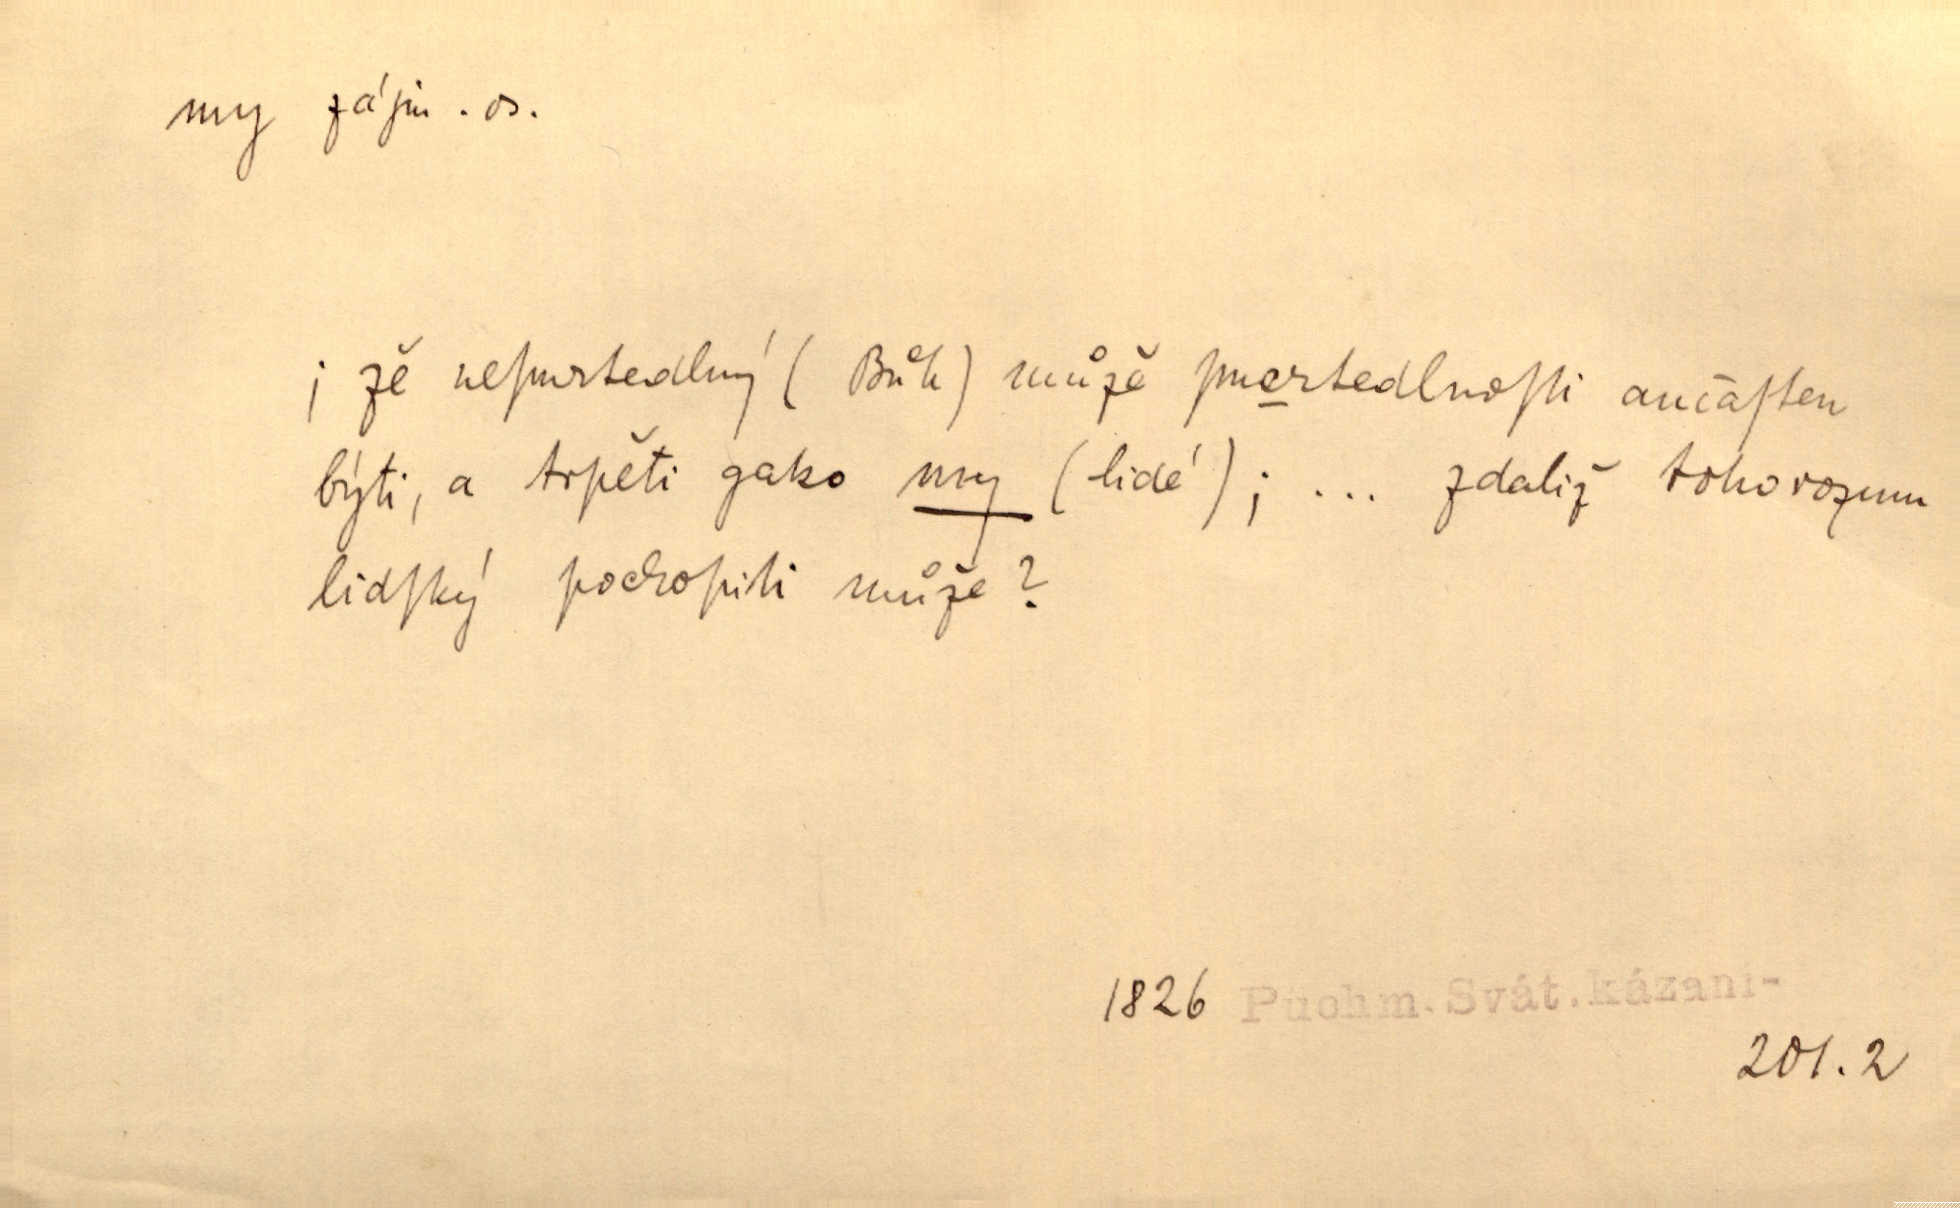 my zájm. os.
; že nesmrtedlný (Bůh) může smertedlnosti aučasten
býti, a trpěti gako my (lidé); ... zdaliž toho rozum
lidský pochopiti může?
1826 Puchm. Svát. kázani-
201.2